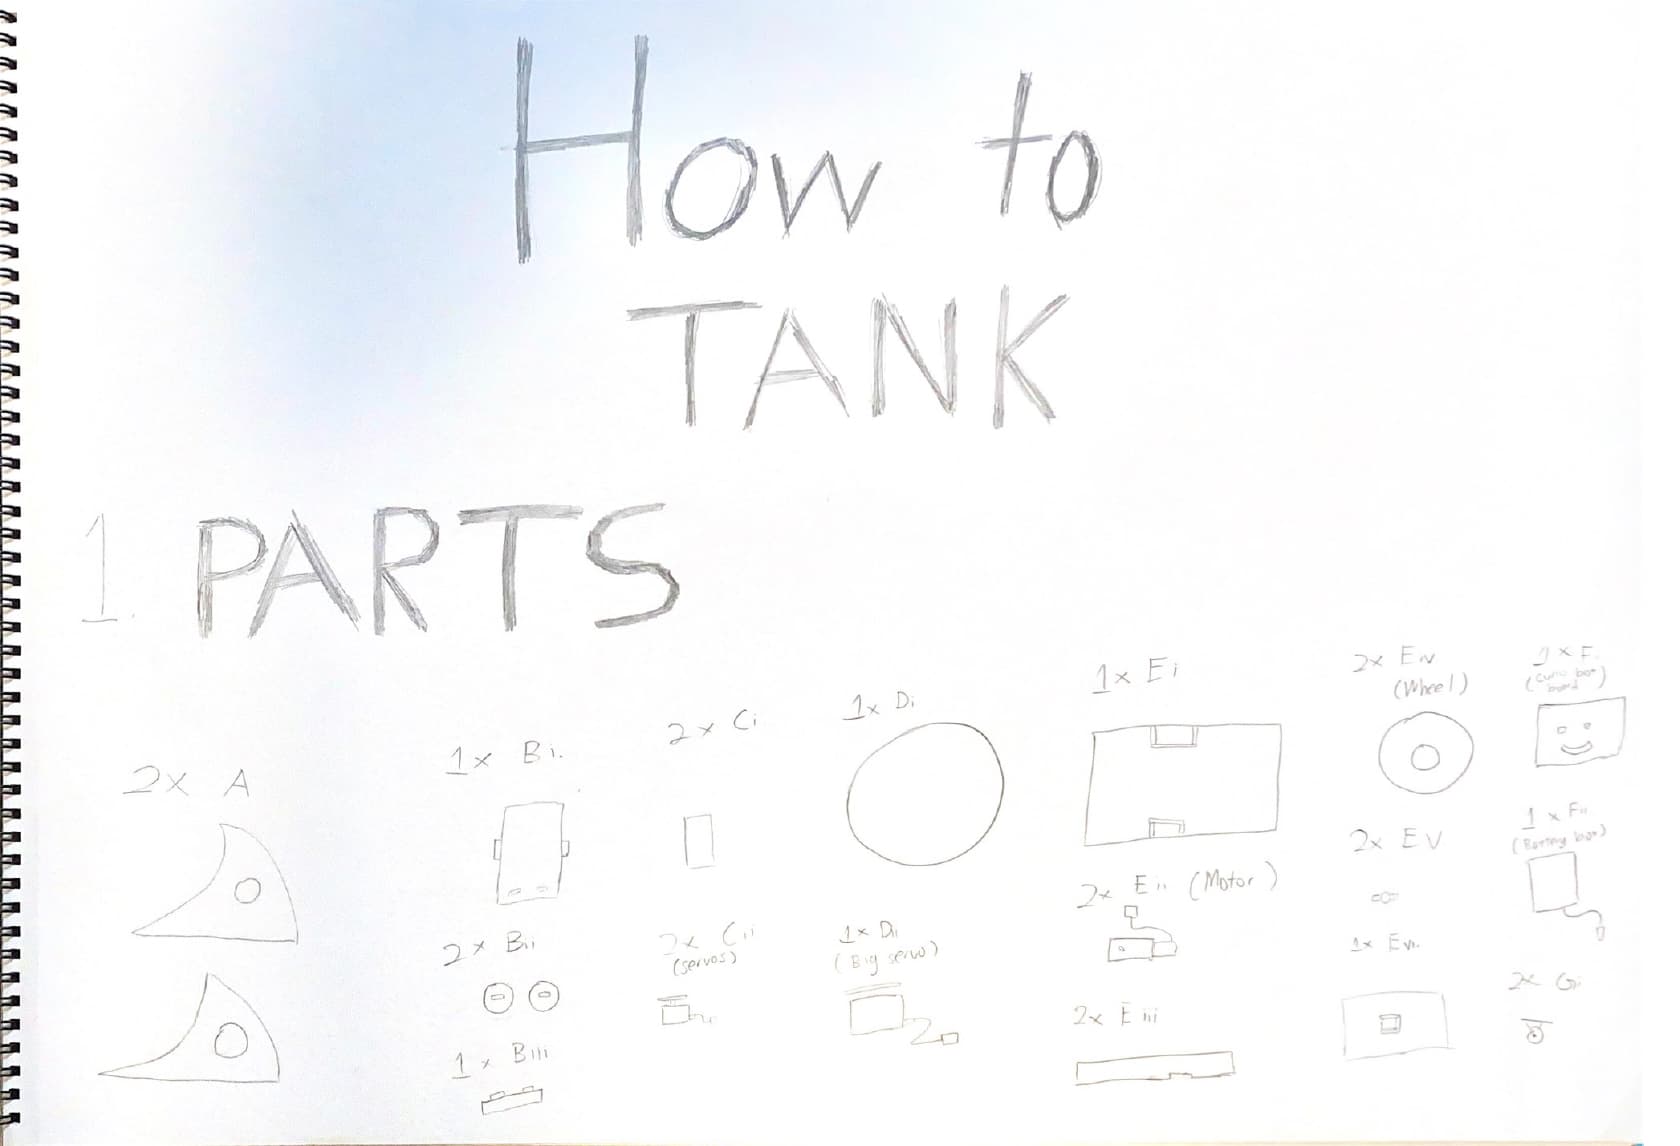 How to
TANK
1. PARTS
2x A
1x Bi.
2x Bii
1x Biii
2x Ci
2x Cii
(servos)
1x Di
1x Dii
(Big servo)
1x Ei
2x Eii (Motor)
2x Eiii
2x Eiv
(Wheel)
2x EV
1x Evi.
1x F.
board)
1x Fii
(Battery box)
2x Gi